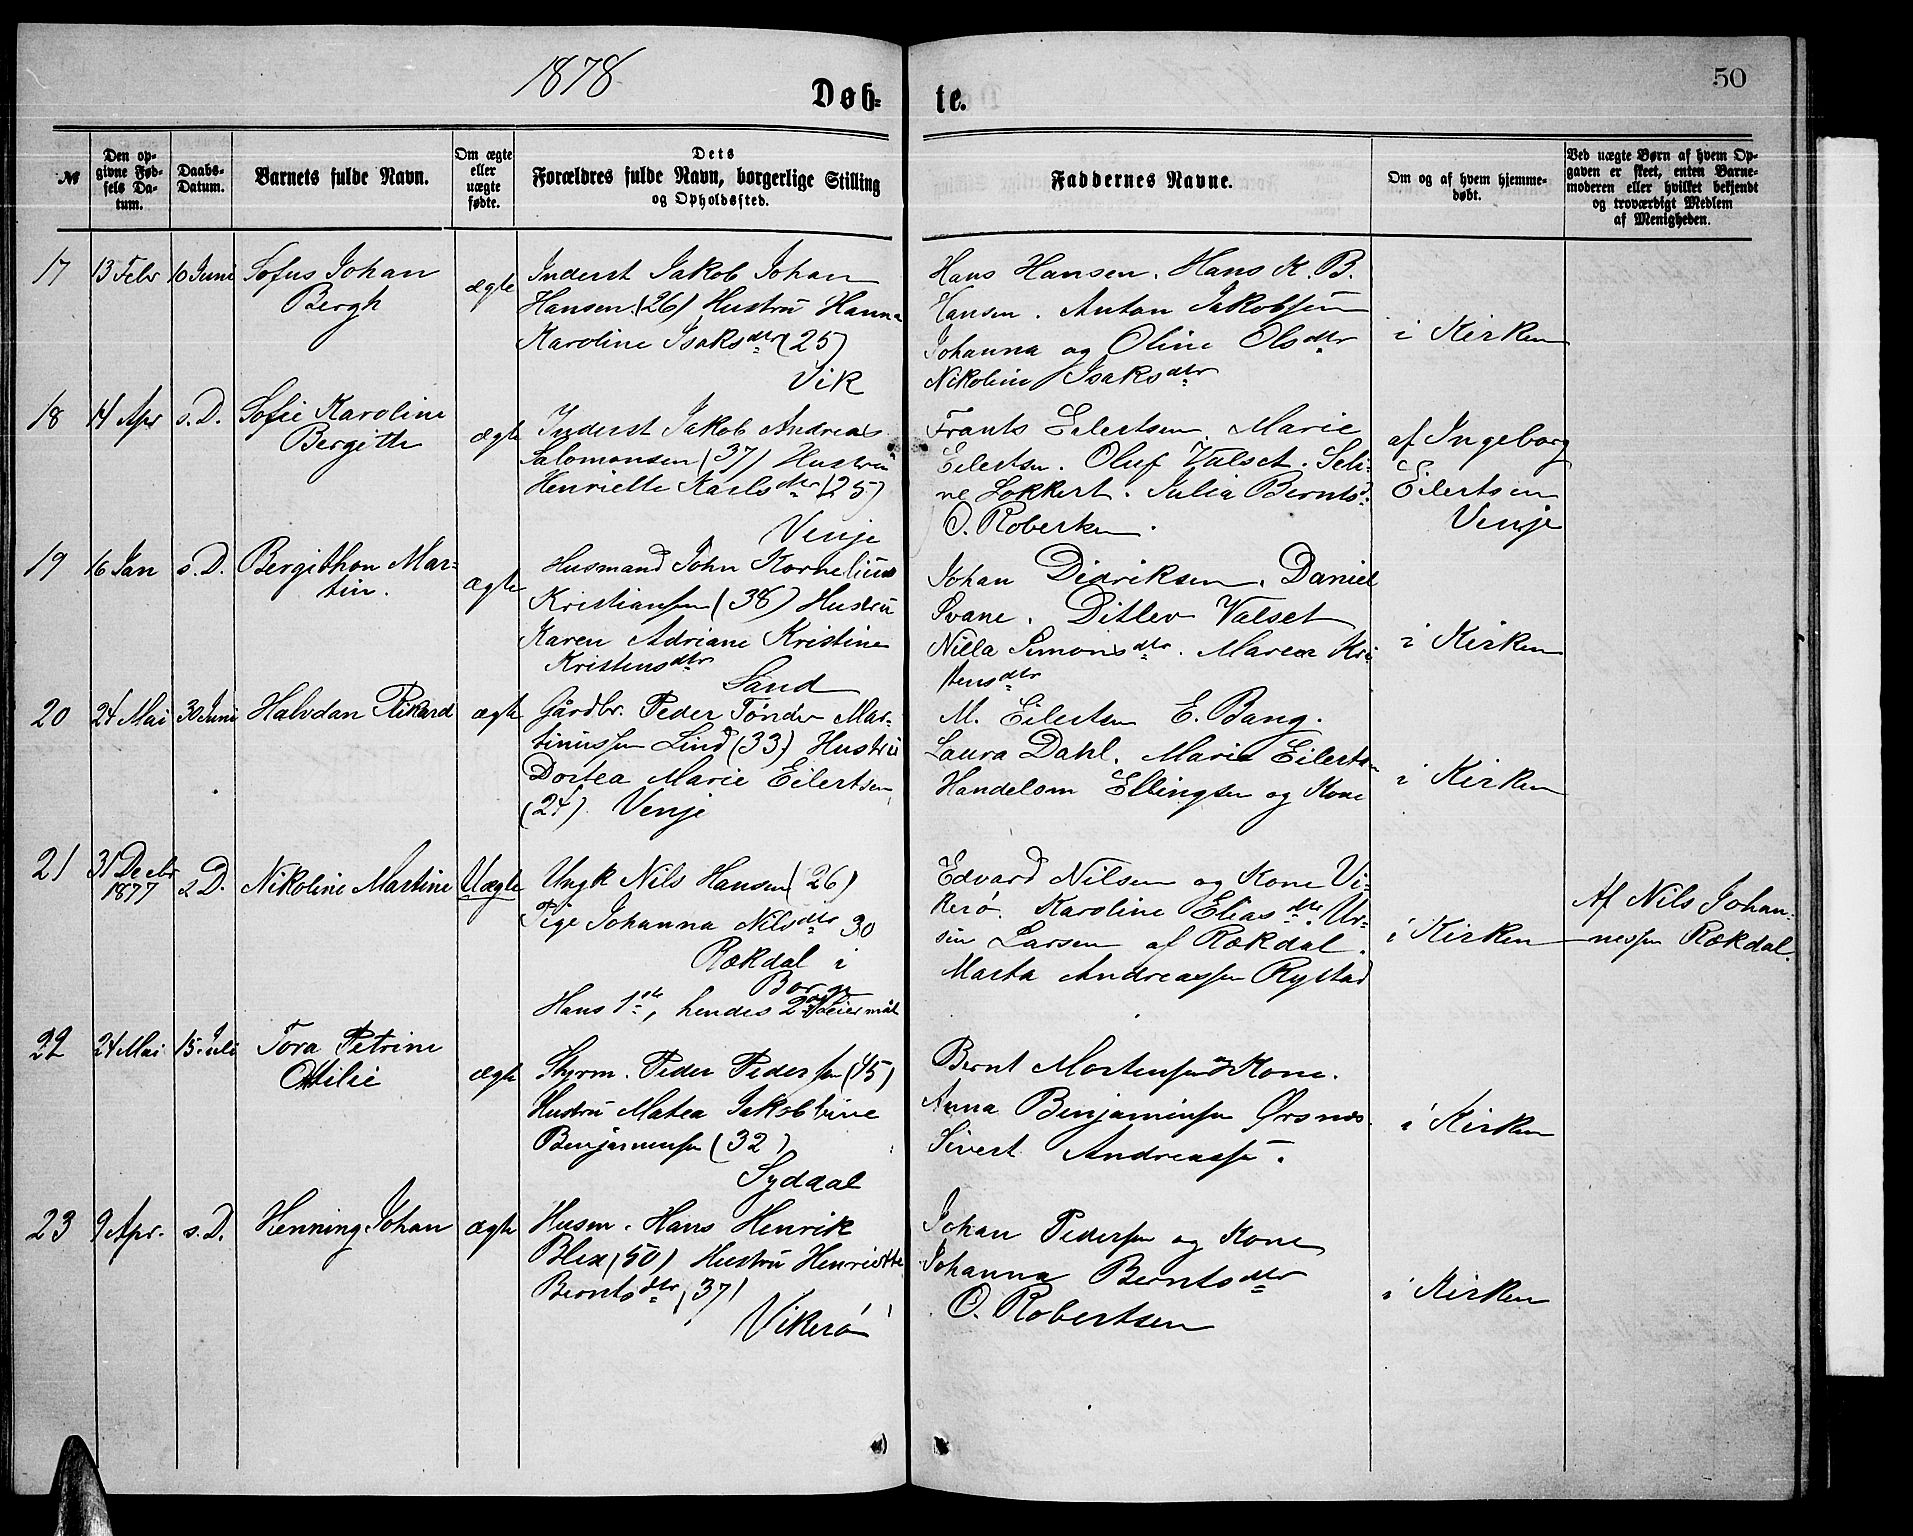 1878
50
Døb-
te.
№
Den op-
givne Fød-
sels Da-
tum.
Daabs-
Datum.
Barnets fulde Navn.
Om ægte
eller
uægte
fødte.
Dets
Forældres fulde Navn, borgerlige Stilling
og Opholdssted.
Faddernes Navne.
Om og af hvem hjemme-
døbt.
Ved uægte Børn af hvem Op-
gaven er skeet, enten Barne-
moderen eller hvilket bekjendt
og troværdigt Medlem
af Menigheden.
17
13 Febr
10 Juni
Sofus Johan
Bergh
ægte
Inderst Jakob Johan
Hansen (26) Hustru Hanna
Karoline Isaksdtr (25)
Vik
Hans Hansen. Hans K. B.
Hansen. Anton Jakobsen
Johanna og Oline Olsdtr
Nikoline Isaksdtr
i Kirken
18
14 Apr
s. D.
Sofie Karoline
Bergitte
ægte
Inderst Jakob Andreas
Salomonsen (37) Hustru
Henriette Karlsdtr (25)
Venje
Frants Eilertsen. Marie
Eilertsn. Oluf Valset. Seli-
ne Lokkert. Julia Berntsd.
O. Robertsen.
af Ingeborg
Eilertsen
Venje
19
16 Jan
s. D.
Bergithon Mar-
tin.
ægte
Husmand John Kornelius
Kristiansen (38) Hustru
Karen Adriane Kristine
Kristensdtr
Sand
Johan Didriksen. Daniel
Svane. Ditlev Valset
Nilla Simonsdtr. Maren Kri
stensdtr
i Kirken
20
24 Mai
30 Juni
Halvdan Rikard
ægte
Gårdbr. Peder Tønder Mar-
tinussen Lind (33) Hustru
Dortea Marie Eilertsen
(24) Venje
M. Eilertsen E. Bang.
Laura Dahl. Marie Eilertsn
Handelsm Ellingsen og Kone
i Kirken
21
31 Decbr
1877
s. D.
Nikoline Martine
Uægte
Ungk Nils Hansen (26)
Pige Johanna Nilsdtr 30
Rækdal i
Borge
Hans 1ste, hendes 2det Leiermål
Edvard Nilsen og Kone Vi-
kerø. Karoline Eliasdtr. Ur-
sin Larsen af Rækdal.
Marta Andreassen Rystad
i Kirken
Af Nils Johan-
nessen Rækdal.
22
24 Mai
15 Juli
Tora Petrine
Otilie
ægte
Styrm. Peder Pedersen (45)
Hustru Matea Jakobbine
Benjaminsen (32)
Syddal
Bernt Mortensen og Kone.
Anna Benjaminsen Ørsnes.
Sivert Andreassen.
i Kirken
23
9 Apr.
s. D.
Henning Johan
ægte
Husm. Hans Henrik
Blix (50) Hustru Henriette
Berntsdtr (37)
Vikerø
Johan Pedersen og Kone
Johanna Berntsdtr
O. Robertsen
i Kirken